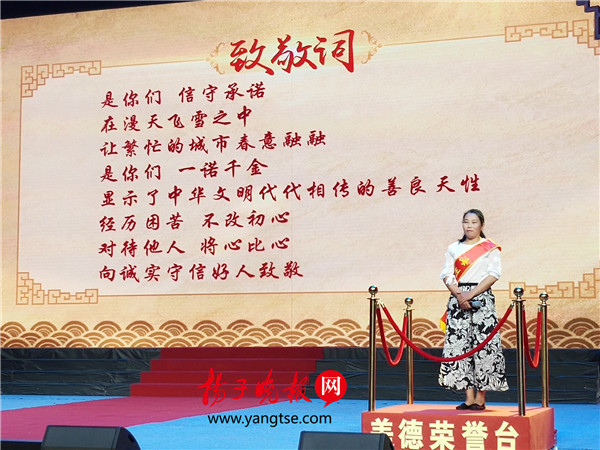 致敬词
是你们 信守承诺
在漫天飞雪之中
让繁忙的城市春意融融
是你们 一诺千金
显示了中华文明代代相传的善良天性
经历困苦 不改初心
对待他人 将心比心
向诚实守信好人致敬
扬子晚报网
www.yangtse.com
美德荣誉台